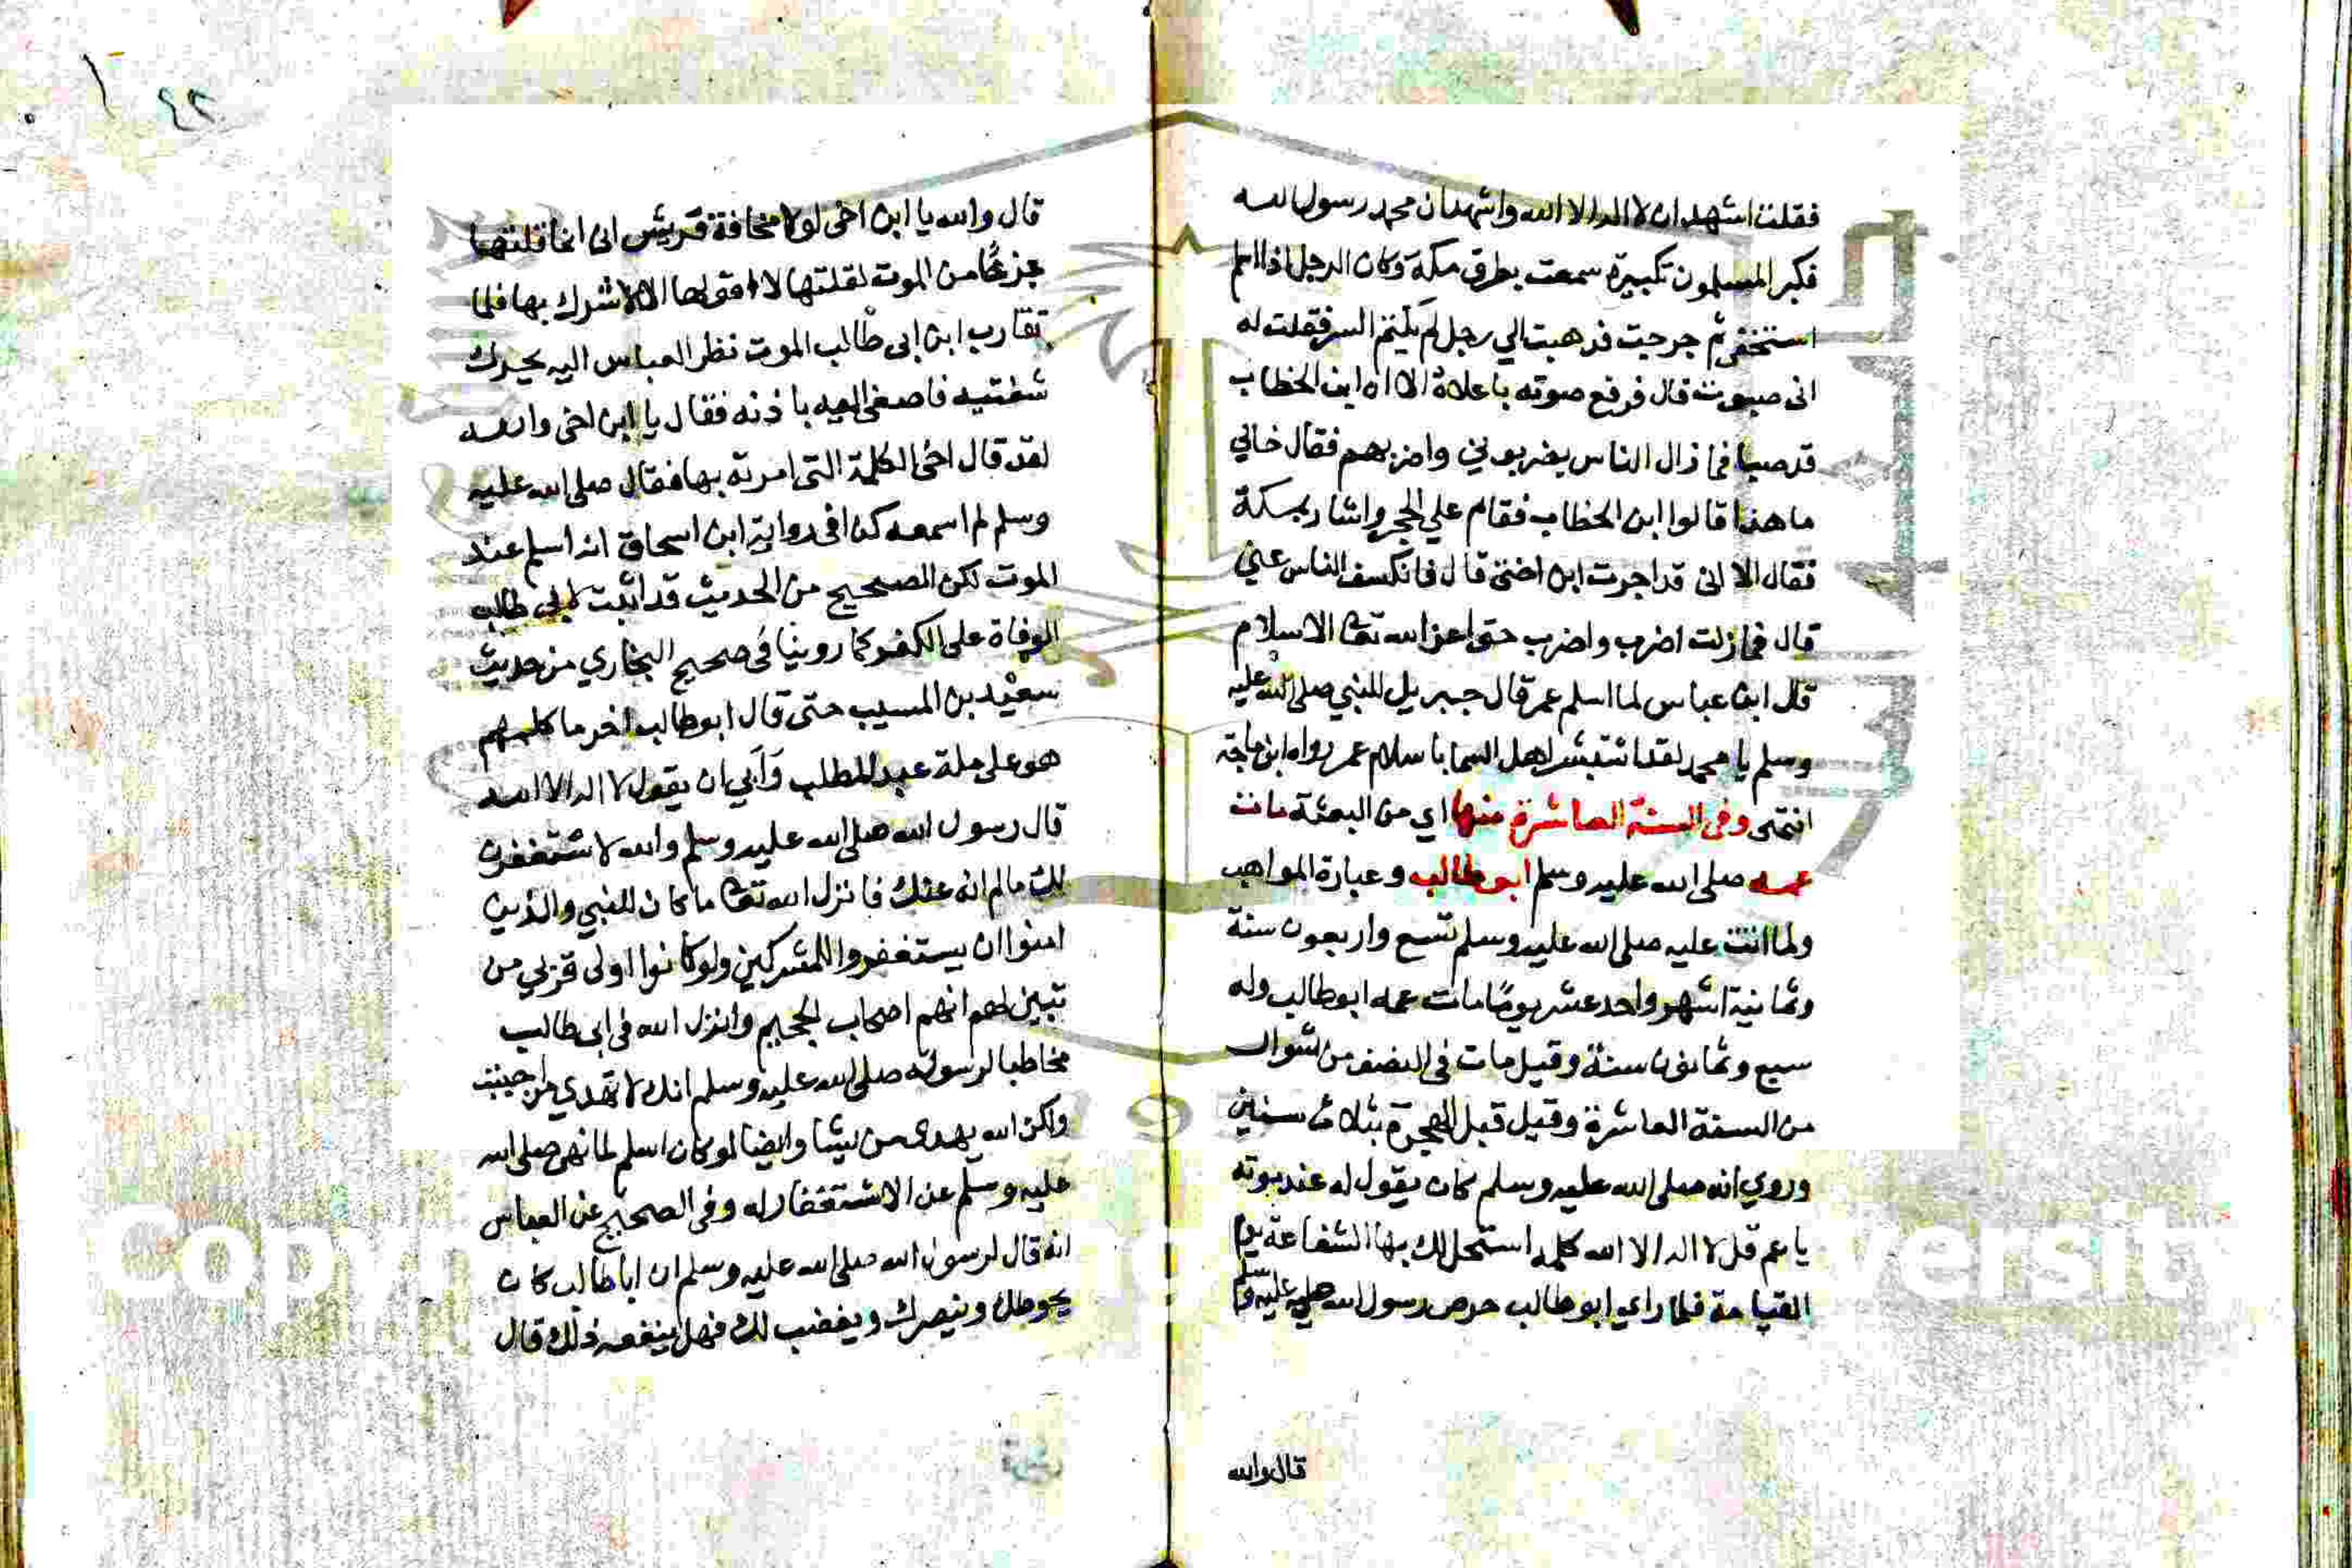 فقلت اشهد ان لا اله الا الله واشهد ان محمد رسول الله
فكبر المسلمون تكبيرة سمعت بطرق مكة وكان الرجل اذا اسلم
استخفى ثم خرجت فذهبت الي رجل لم يكتم السر فقلت له
انى صبوت قال فرفع صوته باعلاه الا ان ابن الخطاب
قد صبا فما زال الناس يضربوني واضربهم فقال خالي
ما هذا قالوا ابن الخطاب فقام علي الحجر واشار بكمه
فقال الا انى قد اجرت ابن اختى قال فانكشف الناس عني
قال فما زلت اضرب واضرب حتى اعز الله تعا الاسلام
قال ابن عباس لما اسلم عمر قال جبريل للنبي صلى الله عليه
وسلم يا محمد لقد استبشر اهل السما باسلام عمر رواه ابن ماجة
انتهى وفى السنة العاشرة منها اي من البعثة مات
عمه صلى الله عليه وسلم ابو طالب وعبارة المواهب
ولما اتت عليه صلى الله عليه وسلم تسع واربعون سنة
وثمانية اشهر واحد عشر يوما مات عمه ابو طالب وله
سبع وثمانون سنة وقيل مات فى النصف من شوال
من السنة العاشرة وقيل قبل الهجرة بثلاث سنين
وروي انه صلى الله عليه وسلم كان يقول له عند موته
يا عم قل لا اله الا الله كلمة استحل لك بها الشفاعة يوم
القيامة فلما راي ابو طالب حرص رسول الله صلى الله عليه وسلم
قال والله
٤٢
قال والله يا ابن اخى لولا مخافة قريش انى انما قلتها
جزعا من الموت لقلتها لا اقولها الا لاسرك بها فلما
تقارب ابن ابى طالب الموت نظر العباس اليه يحرك
شفتيه فاصغى اليه باذنه فقال يا ابن اخى والله
لقد قال اخى الكلمة التى امرته بها فقال صلى الله عليه
وسلم لم اسمعه كذا فى رواية ابن اسحاق انه اسلم عند
الموت لكن الصحيح من الحديث قد اثبت لابى طالب
الوفاة على الكفر كما روينا فى صحيح البخاري من حديث
سعيد بن المسيب حتى قال ابو طالب اخر ما كلمهم
هو على ملة عبد المطلب وأبي ان يقول لا اله الا الله
قال رسول الله صلى الله عليه وسلم والله لاستغفرن
لك ما لم انه عنك فانزل الله تعا ما كان للنبي والذين
امنوا ان يستغفروا للمشركين ولو كانوا اولى قربي من
تبين لهم انهم اصحاب الجحيم وانزل الله فى ابى طالب
مخاطبا لرسوله صلى الله عليه وسلم انك لا تهدي من احببت
ولكن الله يهدى من يشا وايضا لو كان اسلم لما نهى صلى الله
عليه وسلم عن الاستغفار له وفى الصحيح عن العباس
انه قال لرسول الله صلى الله عليه وسلم ان ابا طالب كان
يحوطك وينصرك ويغضب لك فهل ينفعه ذلك قال